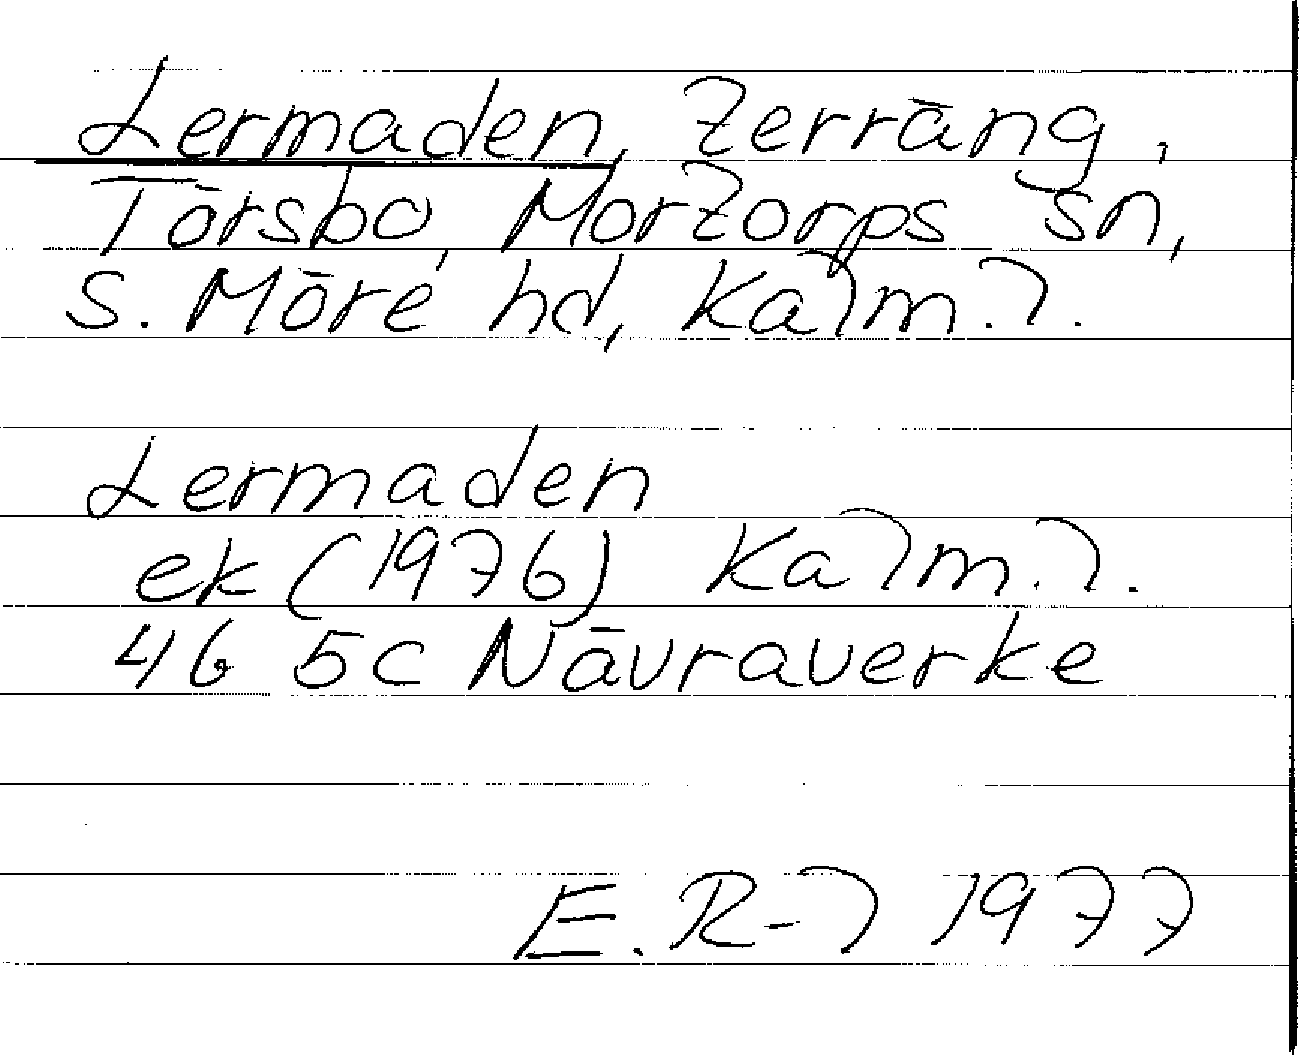 Lermaden, terräng,
Törsbo, Mortorps sn,
S. Möre hd, Kalm. l.
Lermaden
ek (1976) Kalm. l.
4G 5c Nävraverke
E. R-l 1977